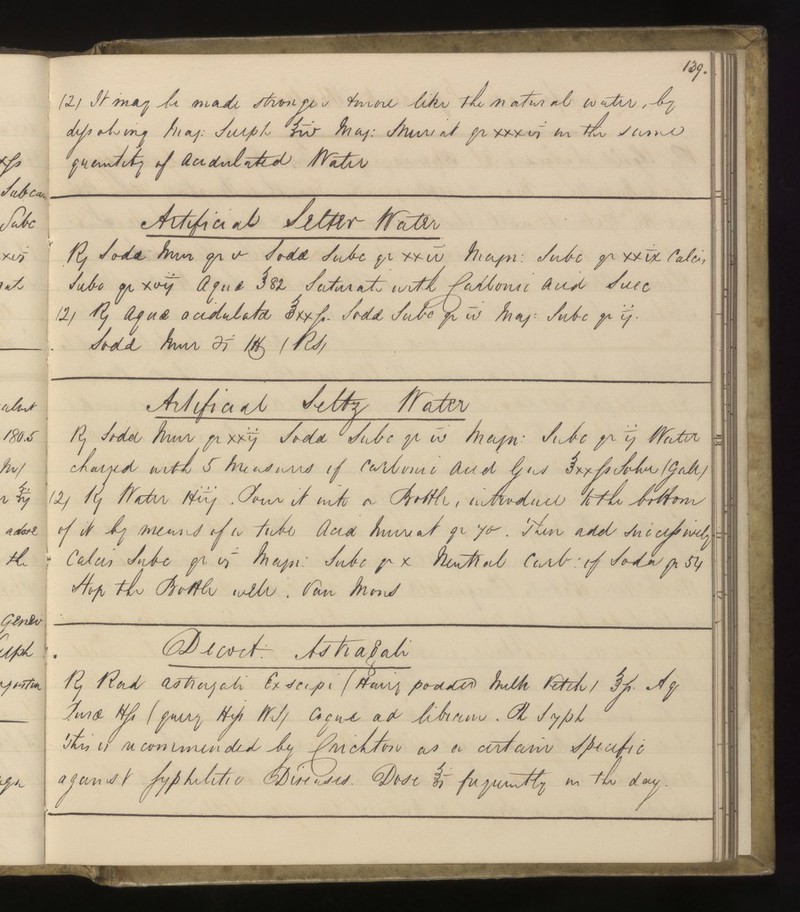 139.
(2) It may be made stronger & more like the natural water, by
dissolving Mag: Sulph ℥iv Mag: Muriat gr xxxvi in the same
quantity of acidulated Water
Artificial Selter Water
℞ Sodæ Mur gr v Sodæ Subc gr xxiv Magn: Subc gr xxix Calcis
Subc gr xvij Aquæ ℥82 Saturate with Carbonic Acid Swed
(2) ℞ Aquæ acidulatæ ℥xxſs. Sodæ Subc gr iv Mag: Subc gr ij.
Sodæ Mur
Artificial Seltz Water
℞ Sodæ Mur gr xxij Sodæ Subc gr iv Magn: Subc gr ij Water
charged with 5 Measures of Carbonic Acid Gas ℥xxſs
(2) ℞ Water. Pour it into a Bottle, introduce to the bottom
of it by means of a tube Acid Muriat gr 70. Then add successively
Calcis Subc gr vi Magn: Subc gr x Neutral Carb: of Soda gr 54
Stop the Bottle well. Van Mons
Decoct: Astragali
℞ Rad Astragali Exscapi (Hairy podded Milk Vetch) ℥ſs. Aq
Puræ (query) Coque ad libram. Ph Syph
This is recommended by Crichton as a certain Specific
against Syphilitic Diseases. Dose ℥vi frequently in the day.
180.5
above
the